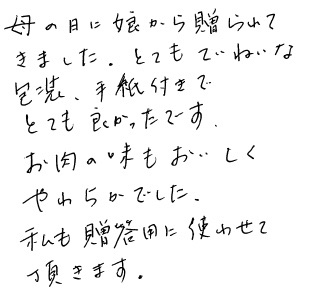 母の日に娘から贈られて
きました。とてもていねいな
包装、手紙付きで
とても良かったです.
お肉の味もおいしく
やわらかでした.
私も贈答用に使わせて
頂きます。